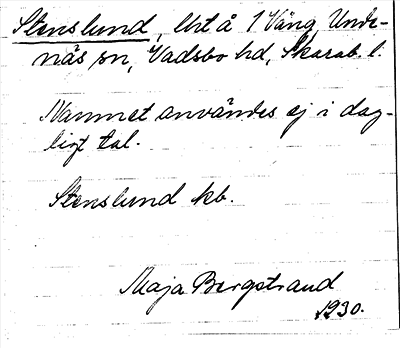 Stenslund, lht å 1 Väng, Unde-
näs sn, Vadsbo hd, Skarab. l.
Namnet användes ej i dag-
ligt tal.
Stenslund kb.
Maja Bergstrand
1930.